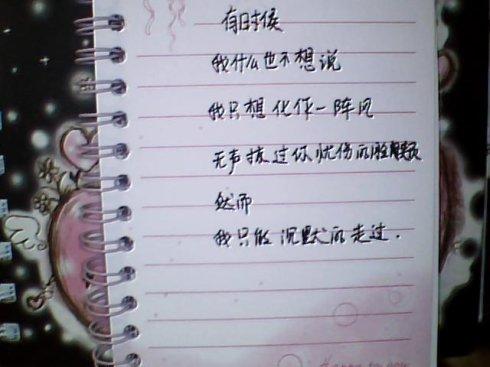 有时候
我什么也不想说
我只想化作一阵风
无声拔过你忧伤的脸颊
然而
我只能沉默的走过.